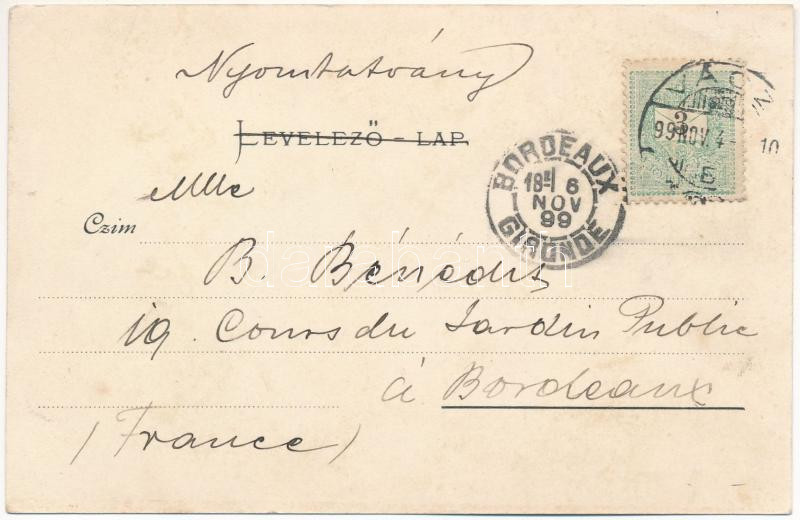 Nyomtatvány
LEVELEZŐ-LAP.
Mlle
Czim
B. Bénédits
19. Cours du Jardin Public
à Bordeaux
(France)
BORDEAUX
18E 6
NOV
99
GIRONDE
VÁCZ
99 NOV. 4
10
3
darabanth